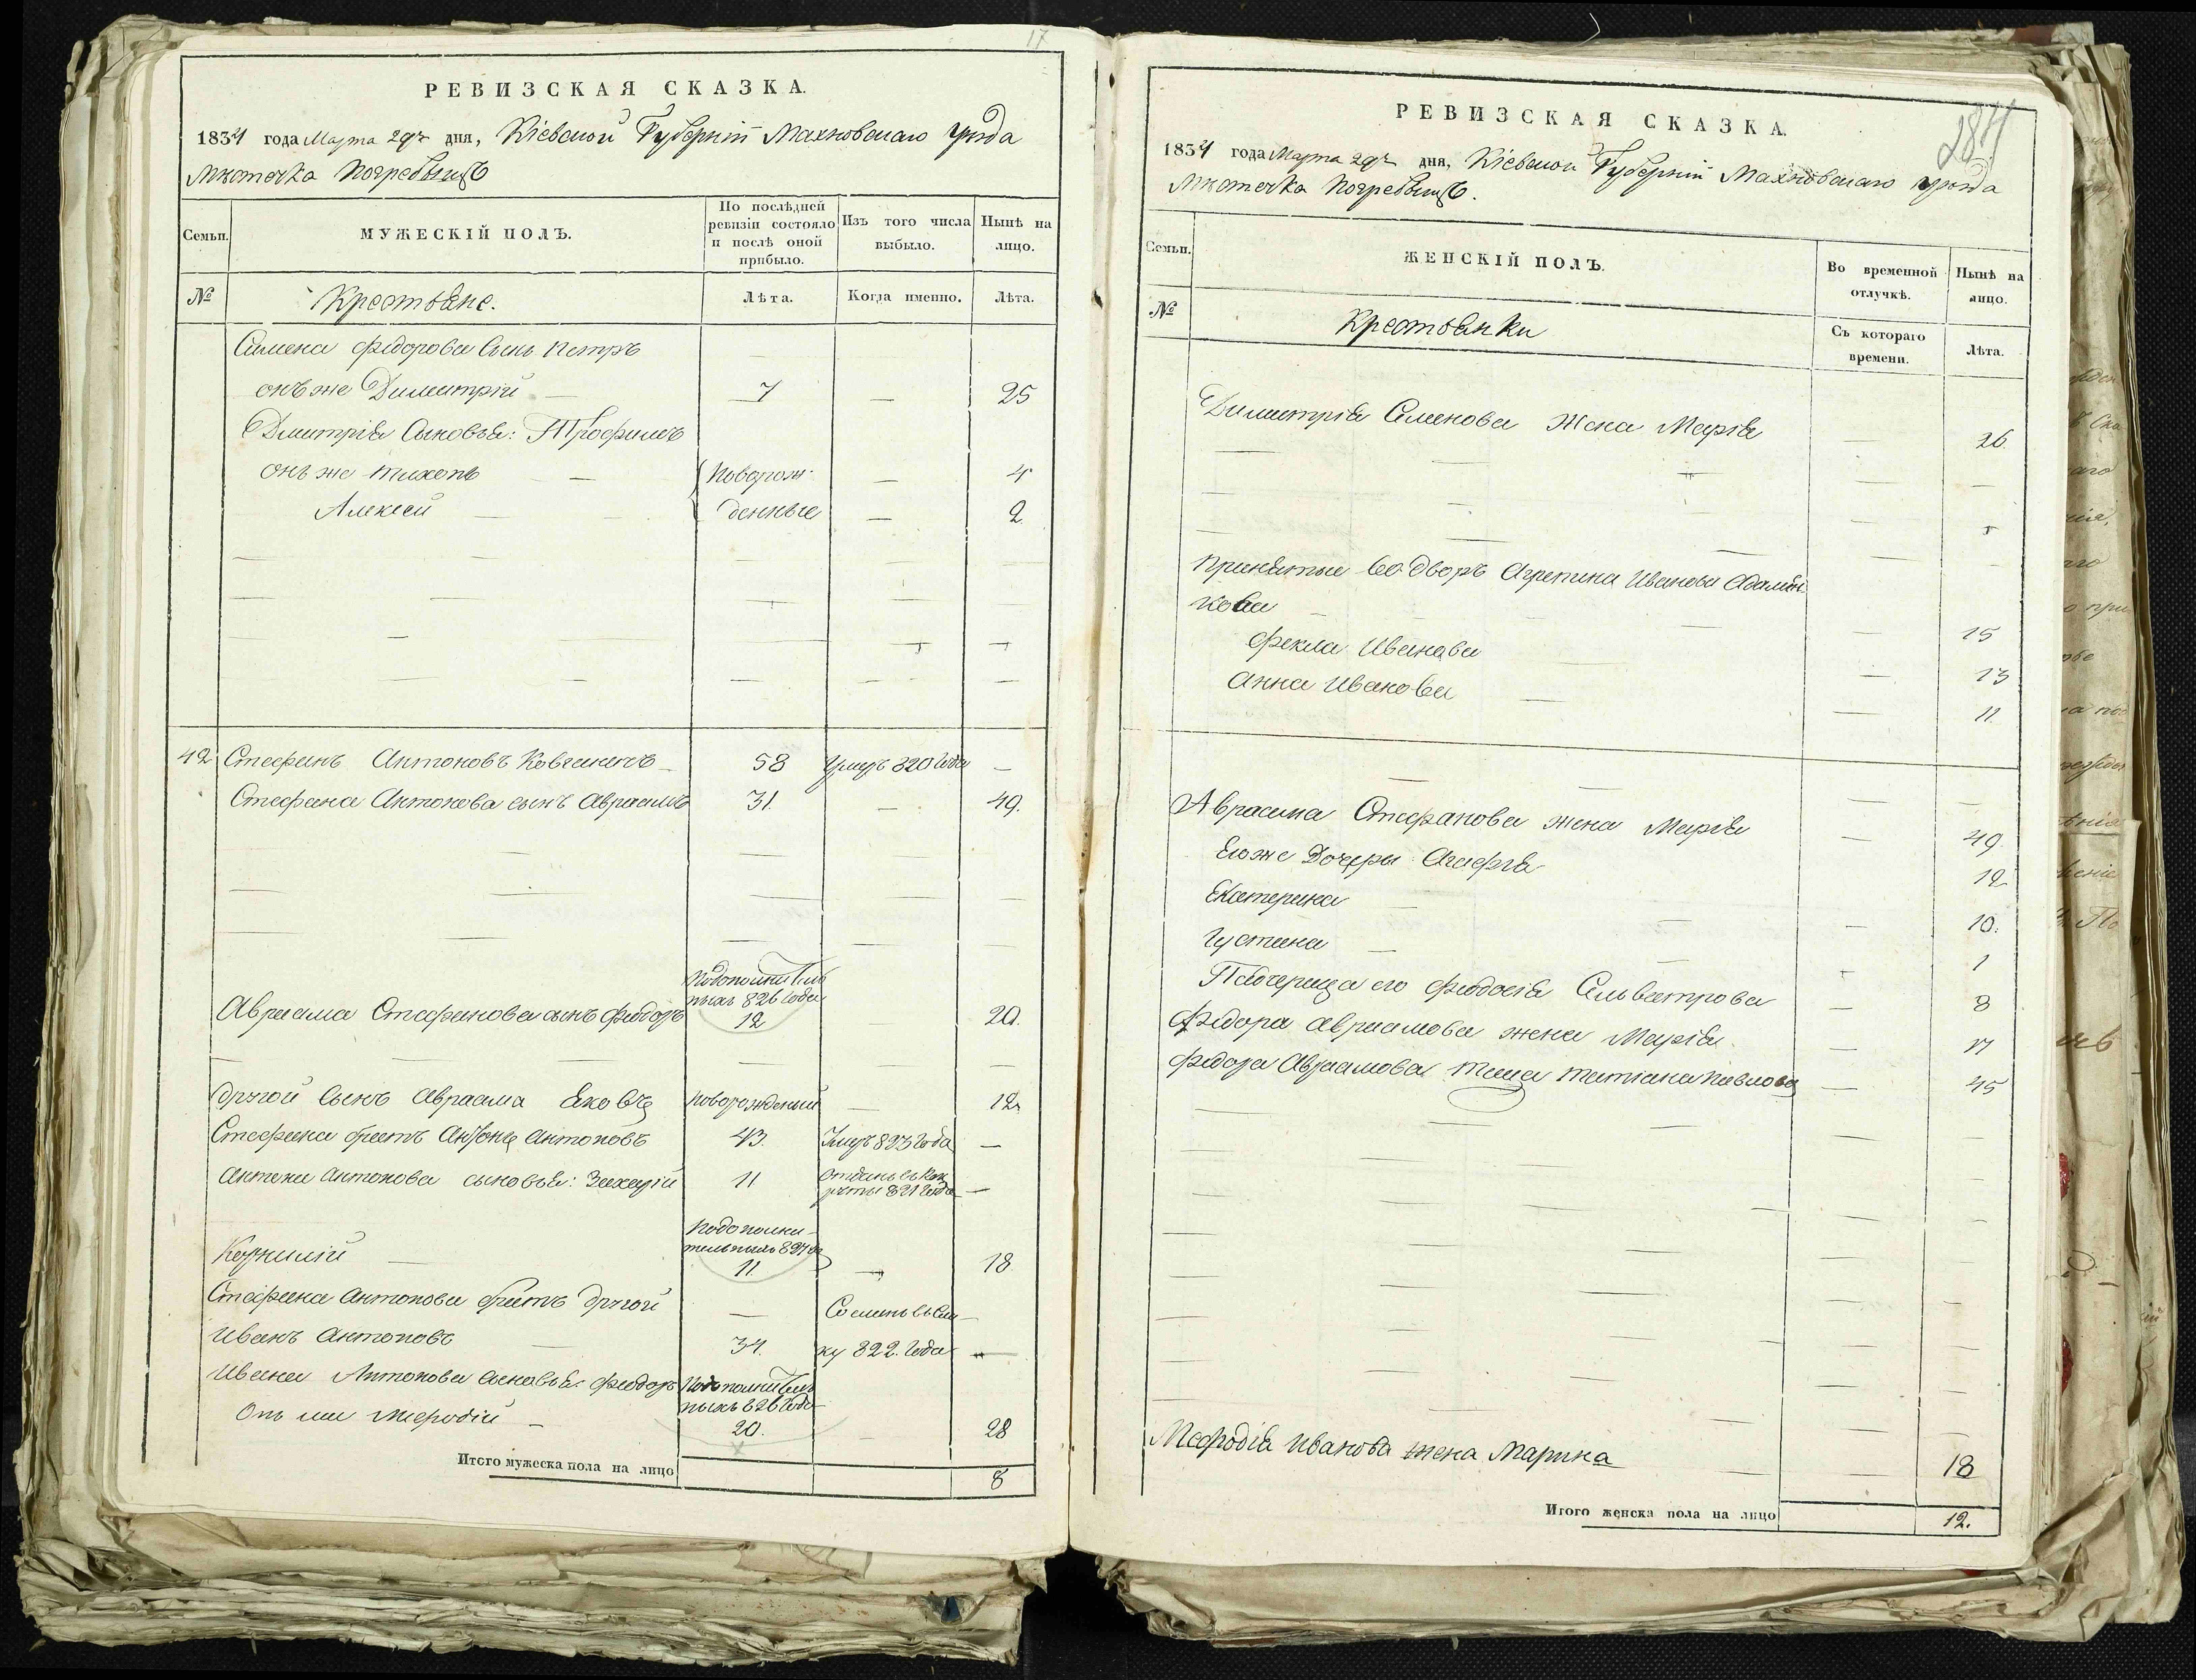 17
РЕВИЗСКАЯ СКАЗКА.
1834 года Марта 29го дня, Кіевской Губерніи Махновскаго уѣзда
Мѣстечка Погребыщъ
Семьи.
МУЖЕСКІЙ ПОЛЪ.
По послѣдней ревизіи состояло и послѣ оной прибыло.
Изъ того числа выбыло.
Нынѣ на лицо.
№
Крестьяне.
Лѣта.
Когда именно.
Лѣта.
Симена Федорова сынъ Петръ
онъ же Димитрій — 7 — 25
Дмитрія Сыновья: Трофимъ
онъ же Тихонъ — новорож — 4
Алексей — денные — 2
42 Стефанъ Антоновъ — 58 умеръ 820 года —
Стефана Антонова сынъ Авраамъ 31. — 49.
Подополнитель
нымъ 826 года
Авраама Стефанова сынъ Федоръ 12 — 20.
другой сынъ Авраама Яковъ новорожденый — 12
Стефана братъ Антонъ Антоновъ 43. Умеръ 823 года —
Антона Антонова сыновья: Захарій 11 отданъ въ рек
руты 821 года —
Подополни
тельнымъ 827 го
Корнилій — 11 — 18
Стефана Антонова братъ другой — Сосланъ въ Сы
Иванъ Антоновъ — 34. 822. года —
Ивана Антонова сыновья: Федоръ Подополнитель
нымъ 826 года
Онъ же Мефодій — 20. — 28
Итого мужеска пола на лицо 8
РЕВИЗСКАЯ СКАЗКА.
1834 года Марта 29го дня, Кіевской Губерніи Махновскаго уѣзда
Мѣстечка Погребыщъ.
Семьи.
ЖЕНСКІЙ ПОЛЪ.
Во временной отлучкѣ.
Нынѣ на лицо.
№
Крестьянки
Съ котораго времени.
Лѣта.
Димитрія Семенова Жена Марія — 26.
Принятые во дворъ Агрепина Иванова
кова — 15
Фекла Иванова — 13
Анна Иванова — 11
Авраама Стефанова жена Марія — 49.
Его же Дочеры Агафія — 12
Екатерина — 10.
Густина — 1
Падчерица его Феодосія Сильвестрова — 8
Федора Авраамова жена Марія — 17
Федора Авраамова теща Татіана Павлова — 45
Мефодія Иванова жена Марина — 18
Итого женска пола на лицо 12.